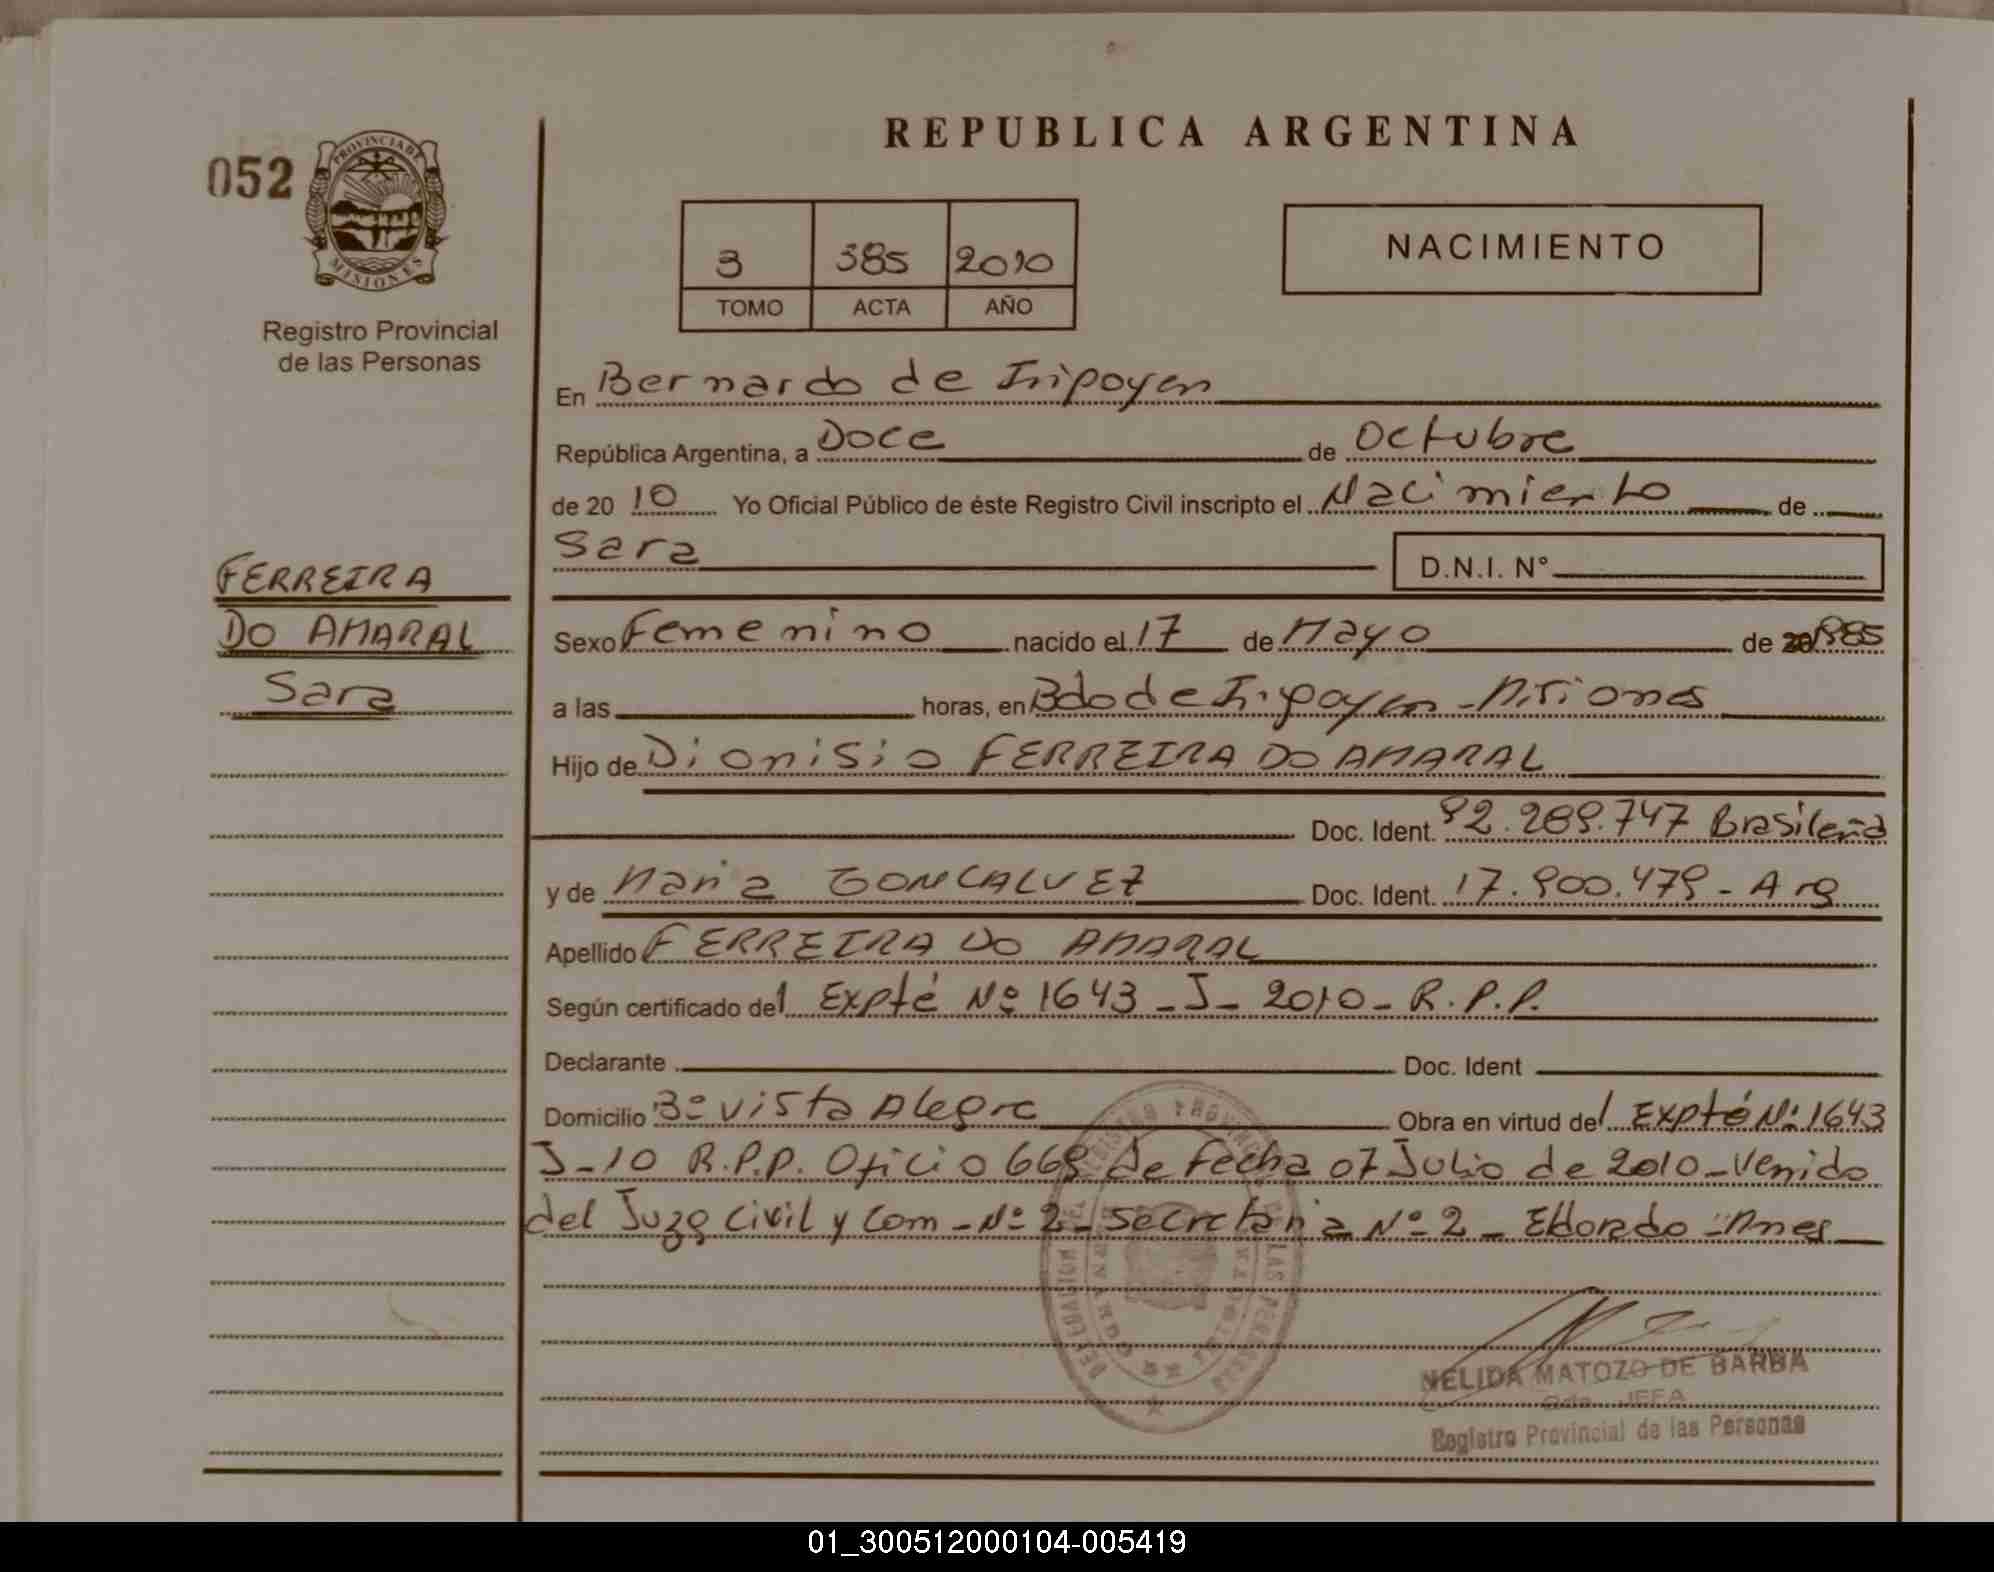 REPUBLICA ARGENTINA
052
PROVINCIA DE
MISIONES
Registro Provincial
de las Personas
3 385 2010
TOMO ACTA AÑO
NACIMIENTO
En Bernardo de Iripoyen
República Argentina, a Doce de Octubre
de 20 10 Yo Oficial Público de éste Registro Civil inscripto el Nacimiento de
Sara D.N.I. N°
FERREIRA
DO AMARAL
Sara
Sexo Femenino nacido el 17 de Mayo de 1985
a las horas, en Bdo de Iripoyen - Misiones
Hijo de Dionisio FERREIRA DO AMARAL
Doc. Ident. 92.289.747 Brasileña
y de Maria GONCALVEZ Doc. Ident. 17.900.479 - Arg
Apellido FERREIRA DO AMARAL
Según certificado del Expté Nº 1643 - J - 2010 - R.P.P.
Declarante Doc. Ident
Domicilio Bº Vista Alegre Obra en virtud del Expté Nº 1643
J-10 R.P.P. Oficio 669 de fecha 07 Julio de 2010 - Venido
del Juzg Civil y Com - Nº 2 - Secretaria Nº 2 - Eldorado - Mnes
NELIDA MATOZO DE BARBA
JEFA
Registro Provincial de las Personas
01_300512000104-005419